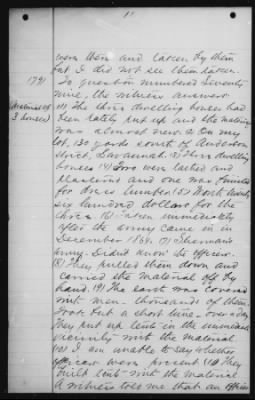 11
were then and taken by them
but I did not see them taken.
791 To question numbered seventy
nine, the witness answers:
(Material of 3 houses)
(1) The three dwelling houses had
been lately put up and the material
was almost new. 2 On my
lot, 130 yards south of Anderson
Street, Savannah. (3) Three dwelling
houses (4) Two were lathed and
plastered and one was
for dress lumber (5) Worth twenty
six hundred dollars for the
three (6) Taken immediately
after the army came in in
December 1864. (7) Sherman's
Army. Didn't know the officers.
(8) They pulled them down and
carried the material off by
hand. (9) The earth was covered
with men - thousands of them.
Took but a short time - over a day.
They put up tents in the immediate
vicinity with the material
(10) I am unable to say whether
officers were present (11) They
built tents with the material
A witness told me that an officer